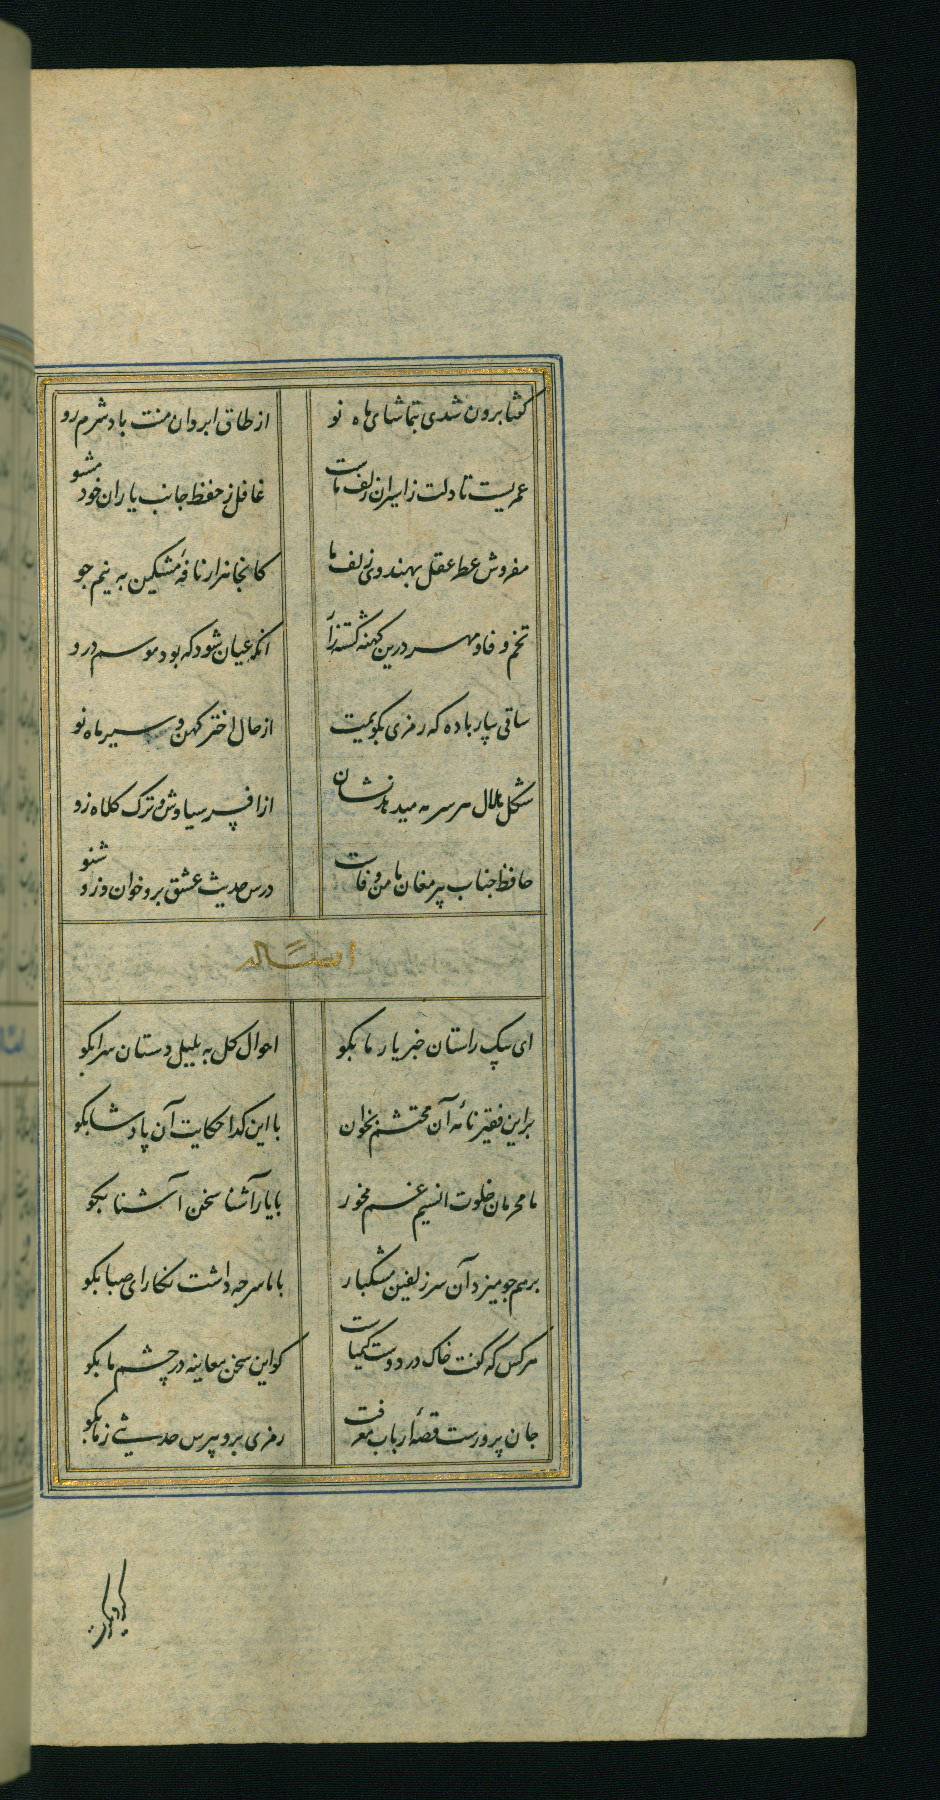 گفتا برون شدی بتماشای ماه نو
از طاق ابروان منت باد شرم رو
عمریست تا دلت ز اسیران زلف ماست
غافل ز حفظ جانب یاران خود مشو
مفروش عطر عقل بهندوی زلف ما
کانجا هزار نافهٔ مشکین به نیم جو
تخم وفا و مهر درین کهنه کشته زار
انگه عیان شود که بود موسم درو
ساقی بیار باده که رمزی بگویمت
از حال اختر کهن و سیر ماه نو
شکل هلال هر سر مه میدهد نشان
از افسر سیاوش و ترک کلاه زو
حافظ جناب پیر مغان مامن وفاست
درس حدیث عشق برو خوان وزو شنو
ایضا له
ای پیک راستان خبر یار ما بگو
احوال گل به بلبل دستان سرا بگو
بر این فقیر نامهٔ آن محتشم بخوان
با این گدا حکایت آن پادشا بگو
ما محرمان خلوت انسیم غم مخور
با یار آشنا سخن آشنا بگو
برهم چو میزد آن سر زلفین مشکبار
با ما سر چه داشت نگارای صبا بگو
هر کس که گفت خاک در دوست کیمیاست
کو این سخن معاینه در چشم ما بگو
جان پرورست قصهٔ ارباب معرفت
رمزی برو بپرس حدیثی ز ما بگو